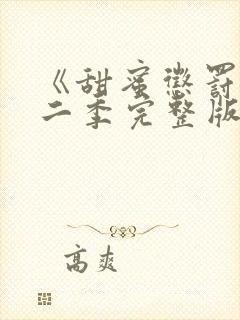 《甜蜜惩罚
二季完整版
高爽